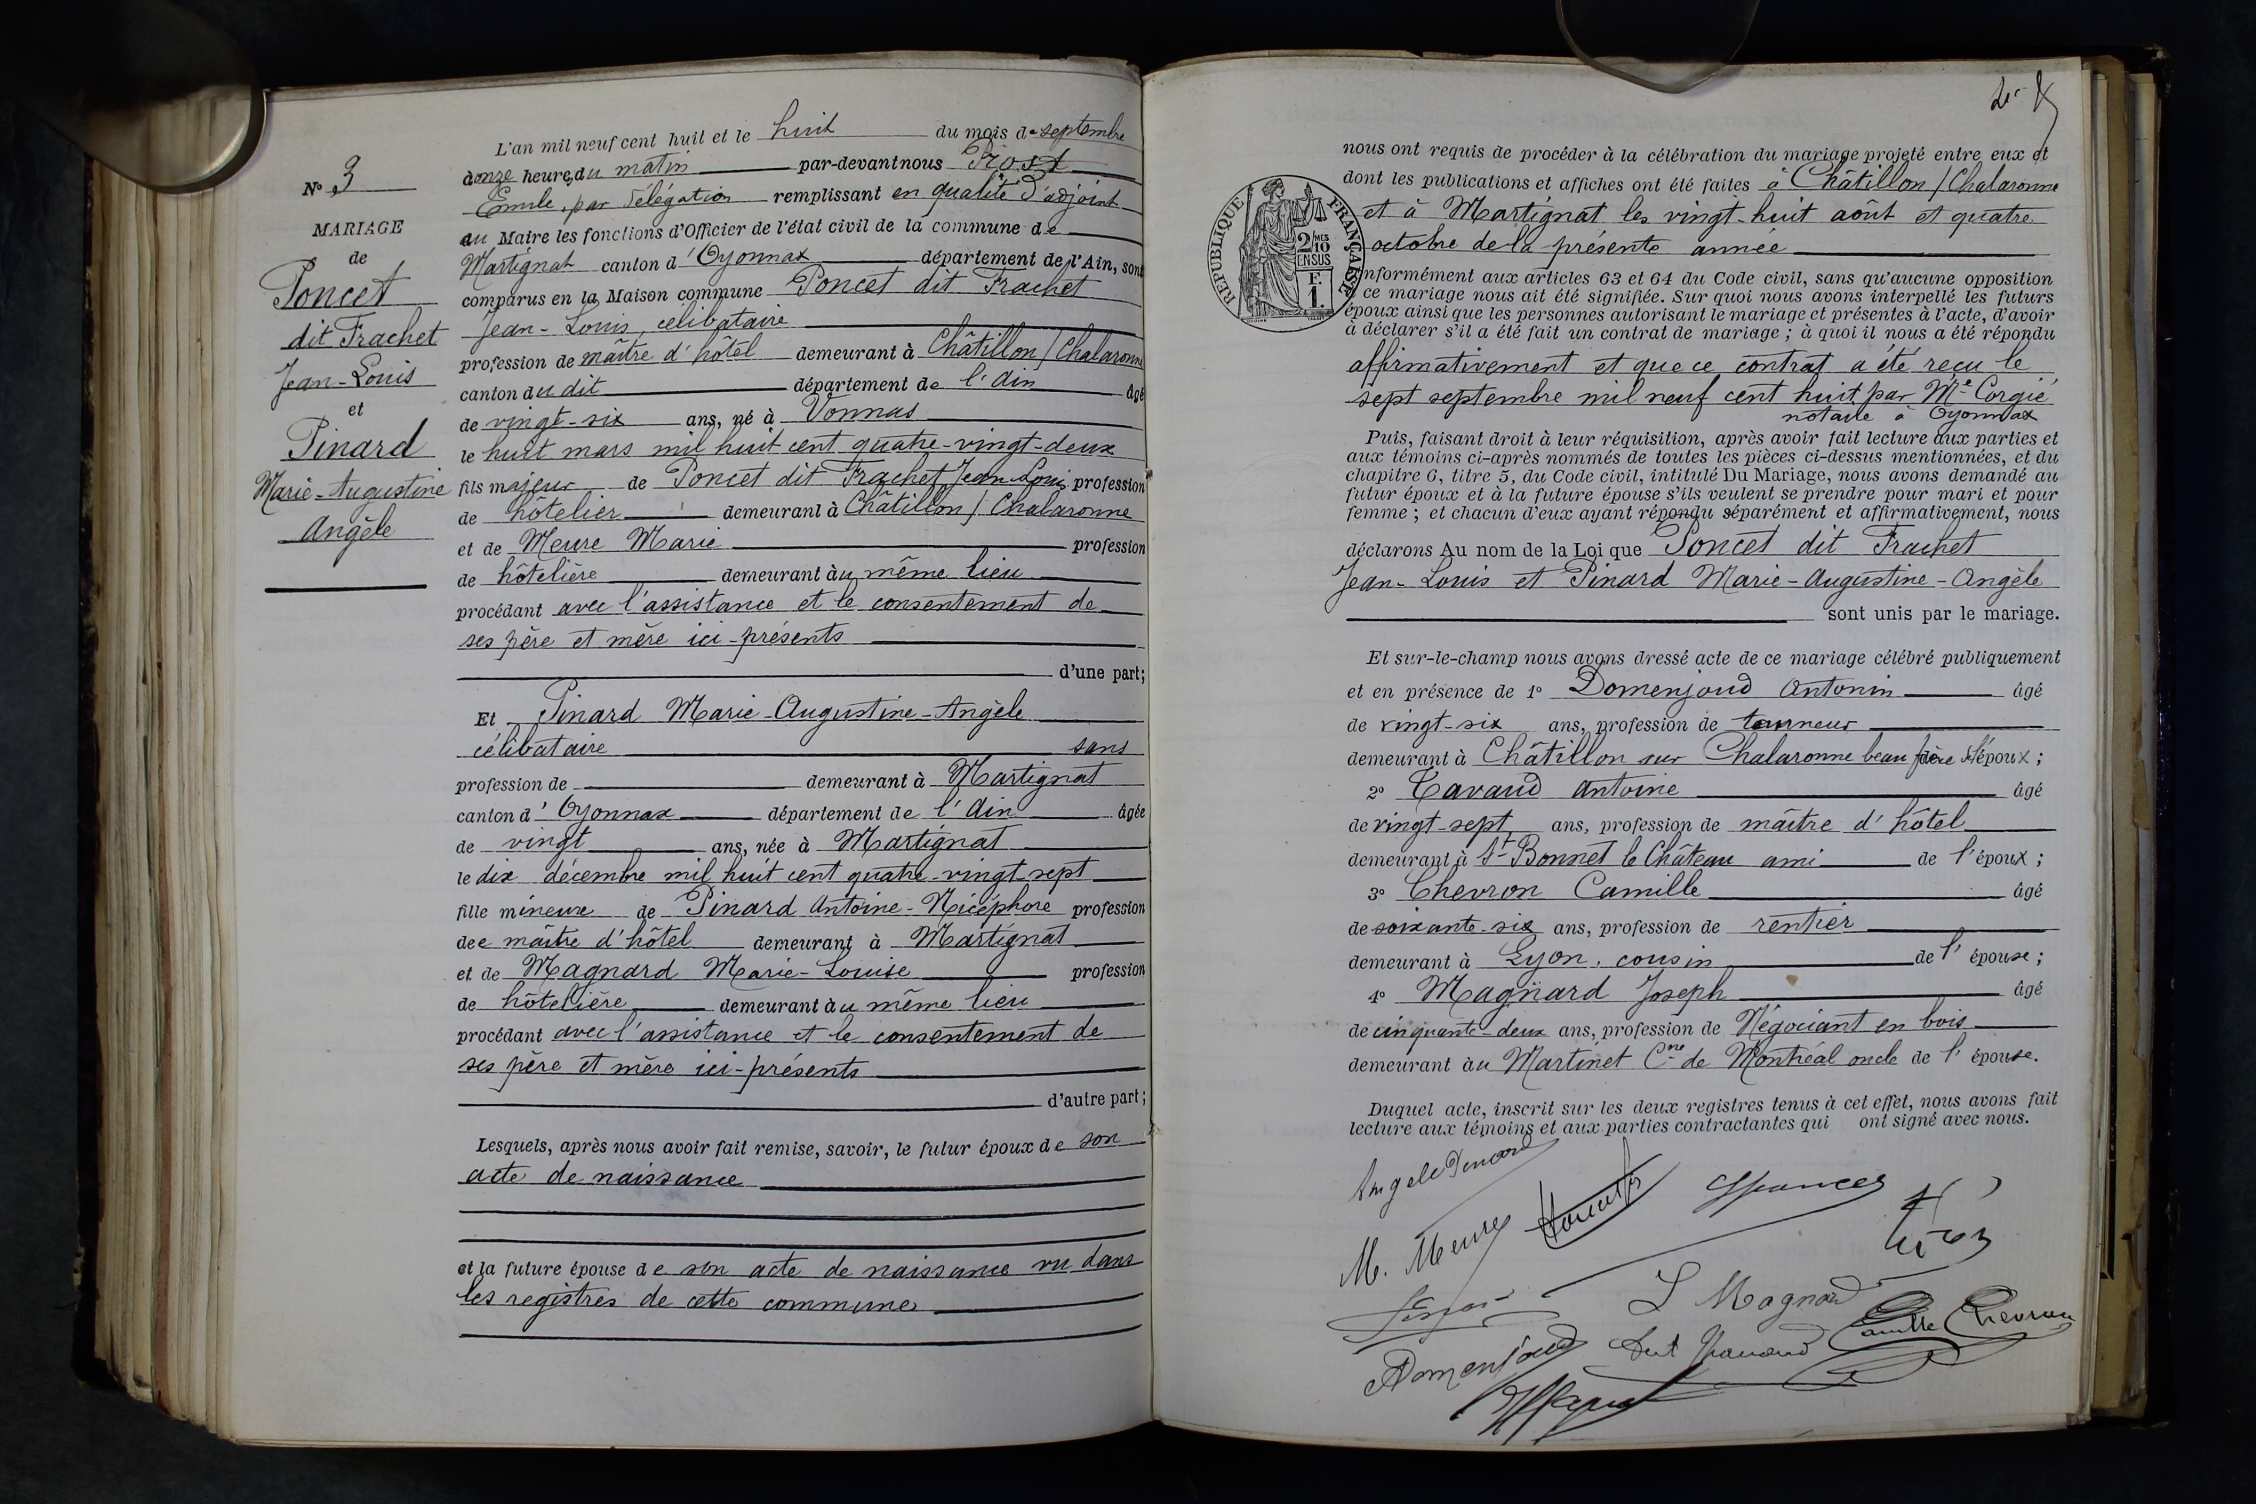 N° 3
MARIAGE
de
Poncet
dit Frachet
Jean-Louis
et
Pinard
Marie-Augustine
Angèle
L'an mil neuf cent huit et le huit du mois de septembre
donze heures du matin par-devant nous Prost
Emile, par délégation remplissant en qualité d'adjoint
au Maire les fonctions d'Officier de l'état civil de la commune de
Martignat canton d'Oyonnax département de l'Ain, sont
comparus en la Maison commune Poncet dit Frachet
Jean-Louis, célibataire
profession de maître d'hôtel demeurant à Châtillon / Chalaronne
canton du dit département de l'Ain âgé
de vingt-six ans, né à Vonnas
le huit mars mil huit cent quatre-vingt-deux
fils majeur de Poncet dit Frachet Jean-Louis profession
de hôtelier demeurant à Châtillon / Chalaronne
et de Meure Marie profession
de hôtelière demeurant au même lieu
procédant avec l'assistance et le consentement de
ses père et mère ici-présents
d'une part;
Et Pinard Marie-Augustine-Angèle
célibataire sans
profession de demeurant à Martignat
canton d'Oyonnax département de l'Ain âgée
de vingt ans, née à Martignat
le dix décembre mil huit cent quatre-vingt-sept
fille mineure de Pinard Antoine-Nicéphore profession
de maître d'hôtel demeurant à Martignat
et de Magnard Marie-Louise profession
de hôtelière demeurant au même lieu
procédant avec l'assistance et le consentement de
ses père et mère ici-présents
d'autre part;
Lesquels, après nous avoir fait remise, savoir, le futur époux de son
acte de naissance
et la future épouse de son acte de naissance vu dans
les registres de cette commune
nous ont requis de procéder à la célébration du mariage projeté entre eux et
dont les publications et affiches ont été faites à Châtillon / Chalaronne
et à Martignat les vingt-huit août et quatre
octobre de la présente année
RÉPUBLIQUE FRANÇAISE
2/10 MES
EN SUS
F.
1.
onformément aux articles 63 et 64 du Code civil, sans qu'aucune opposition
ce mariage nous ait été signifiée. Sur quoi nous avons interpellé les futurs
époux ainsi que les personnes autorisant le mariage et présentes à l'acte, d'avoir
à déclarer s'il a été fait un contrat de mariage; à quoi il nous a été répondu
affirmativement et que ce contrat a été reçu le
sept septembre mil neuf cent huit par Me Corgié
notaire à Oyonnax
Puis, faisant droit à leur réquisition, après avoir fait lecture aux parties et
aux témoins ci-après nommés de toutes les pièces ci-dessus mentionnées, et du
chapitre 6, titre 5, du Code civil, intitulé Du Mariage, nous avons demandé au
futur époux et à la future épouse s'ils veulent se prendre pour mari et pour
femme; et chacun d'eux ayant répondu séparément et affirmativement, nous
déclarons Au nom de la Loi que Poncet dit Frachet
Jean-Louis et Pinard Marie-Augustine-Angèle
sont unis par le mariage.
Et sur-le-champ nous avons dressé acte de ce mariage célébré publiquement
et en présence de 1° Domenjoud Antonin âgé
de vingt-six ans, profession de tourneur
demeurant à Châtillon sur Chalaronne beau frère de l'époux;
2° Tavaud Antoine âgé
de vingt-sept ans, profession de maître d'hôtel
demeurant à St-Bonnet le Château ami de l'époux;
3° Chevron Camille âgé
de soixante-six ans, profession de rentier
demeurant à Lyon, cousin de l'épouse;
4° Magnard Joseph âgé
de cinquante-deux ans, profession de Négociant en bois
demeurant au Martinet Cne de Montréal oncle de l'épouse.
Duquel acte, inscrit sur les deux registres tenus à cet effet, nous avons fait
lecture aux témoins et aux parties contractantes qui ont signé avec nous.
Angèle Pinard
M. Meure
L Magnard
Camille Chevron
ADomenjoud